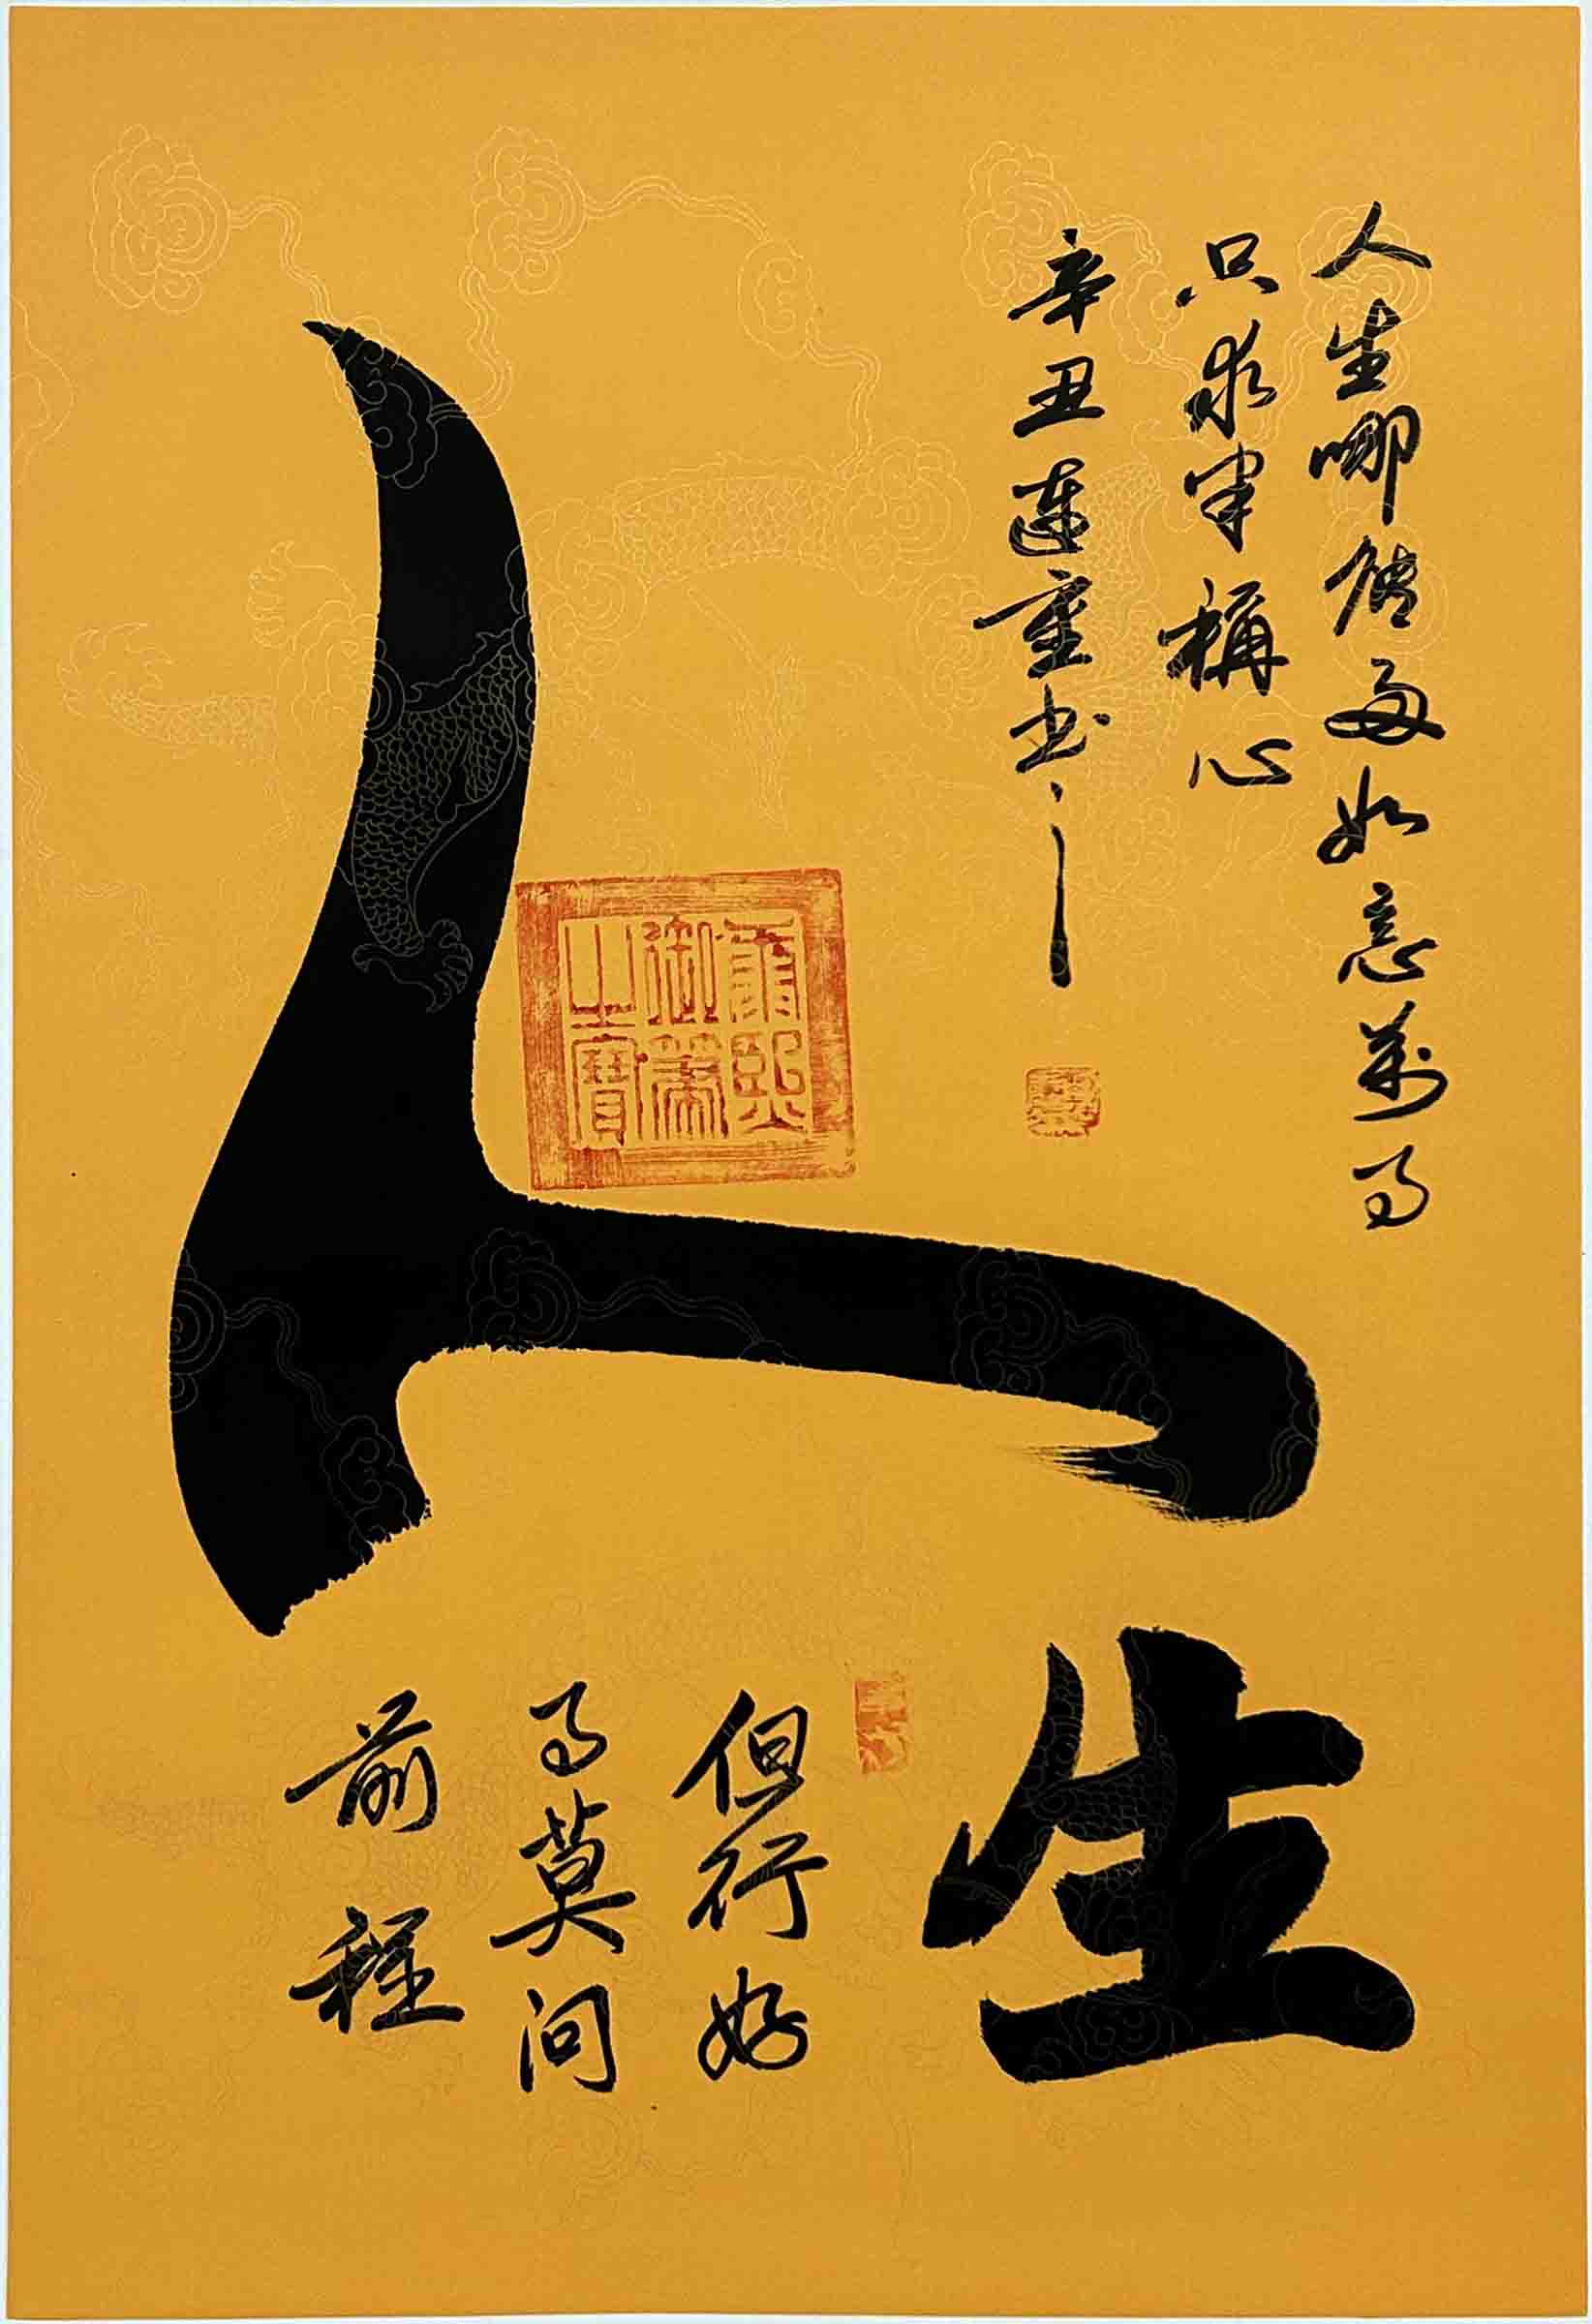 人生
人生哪能多如意萬事
只求半稱心
辛丑連重书
康熙
御筆
之寶
但行好
事莫问
前程